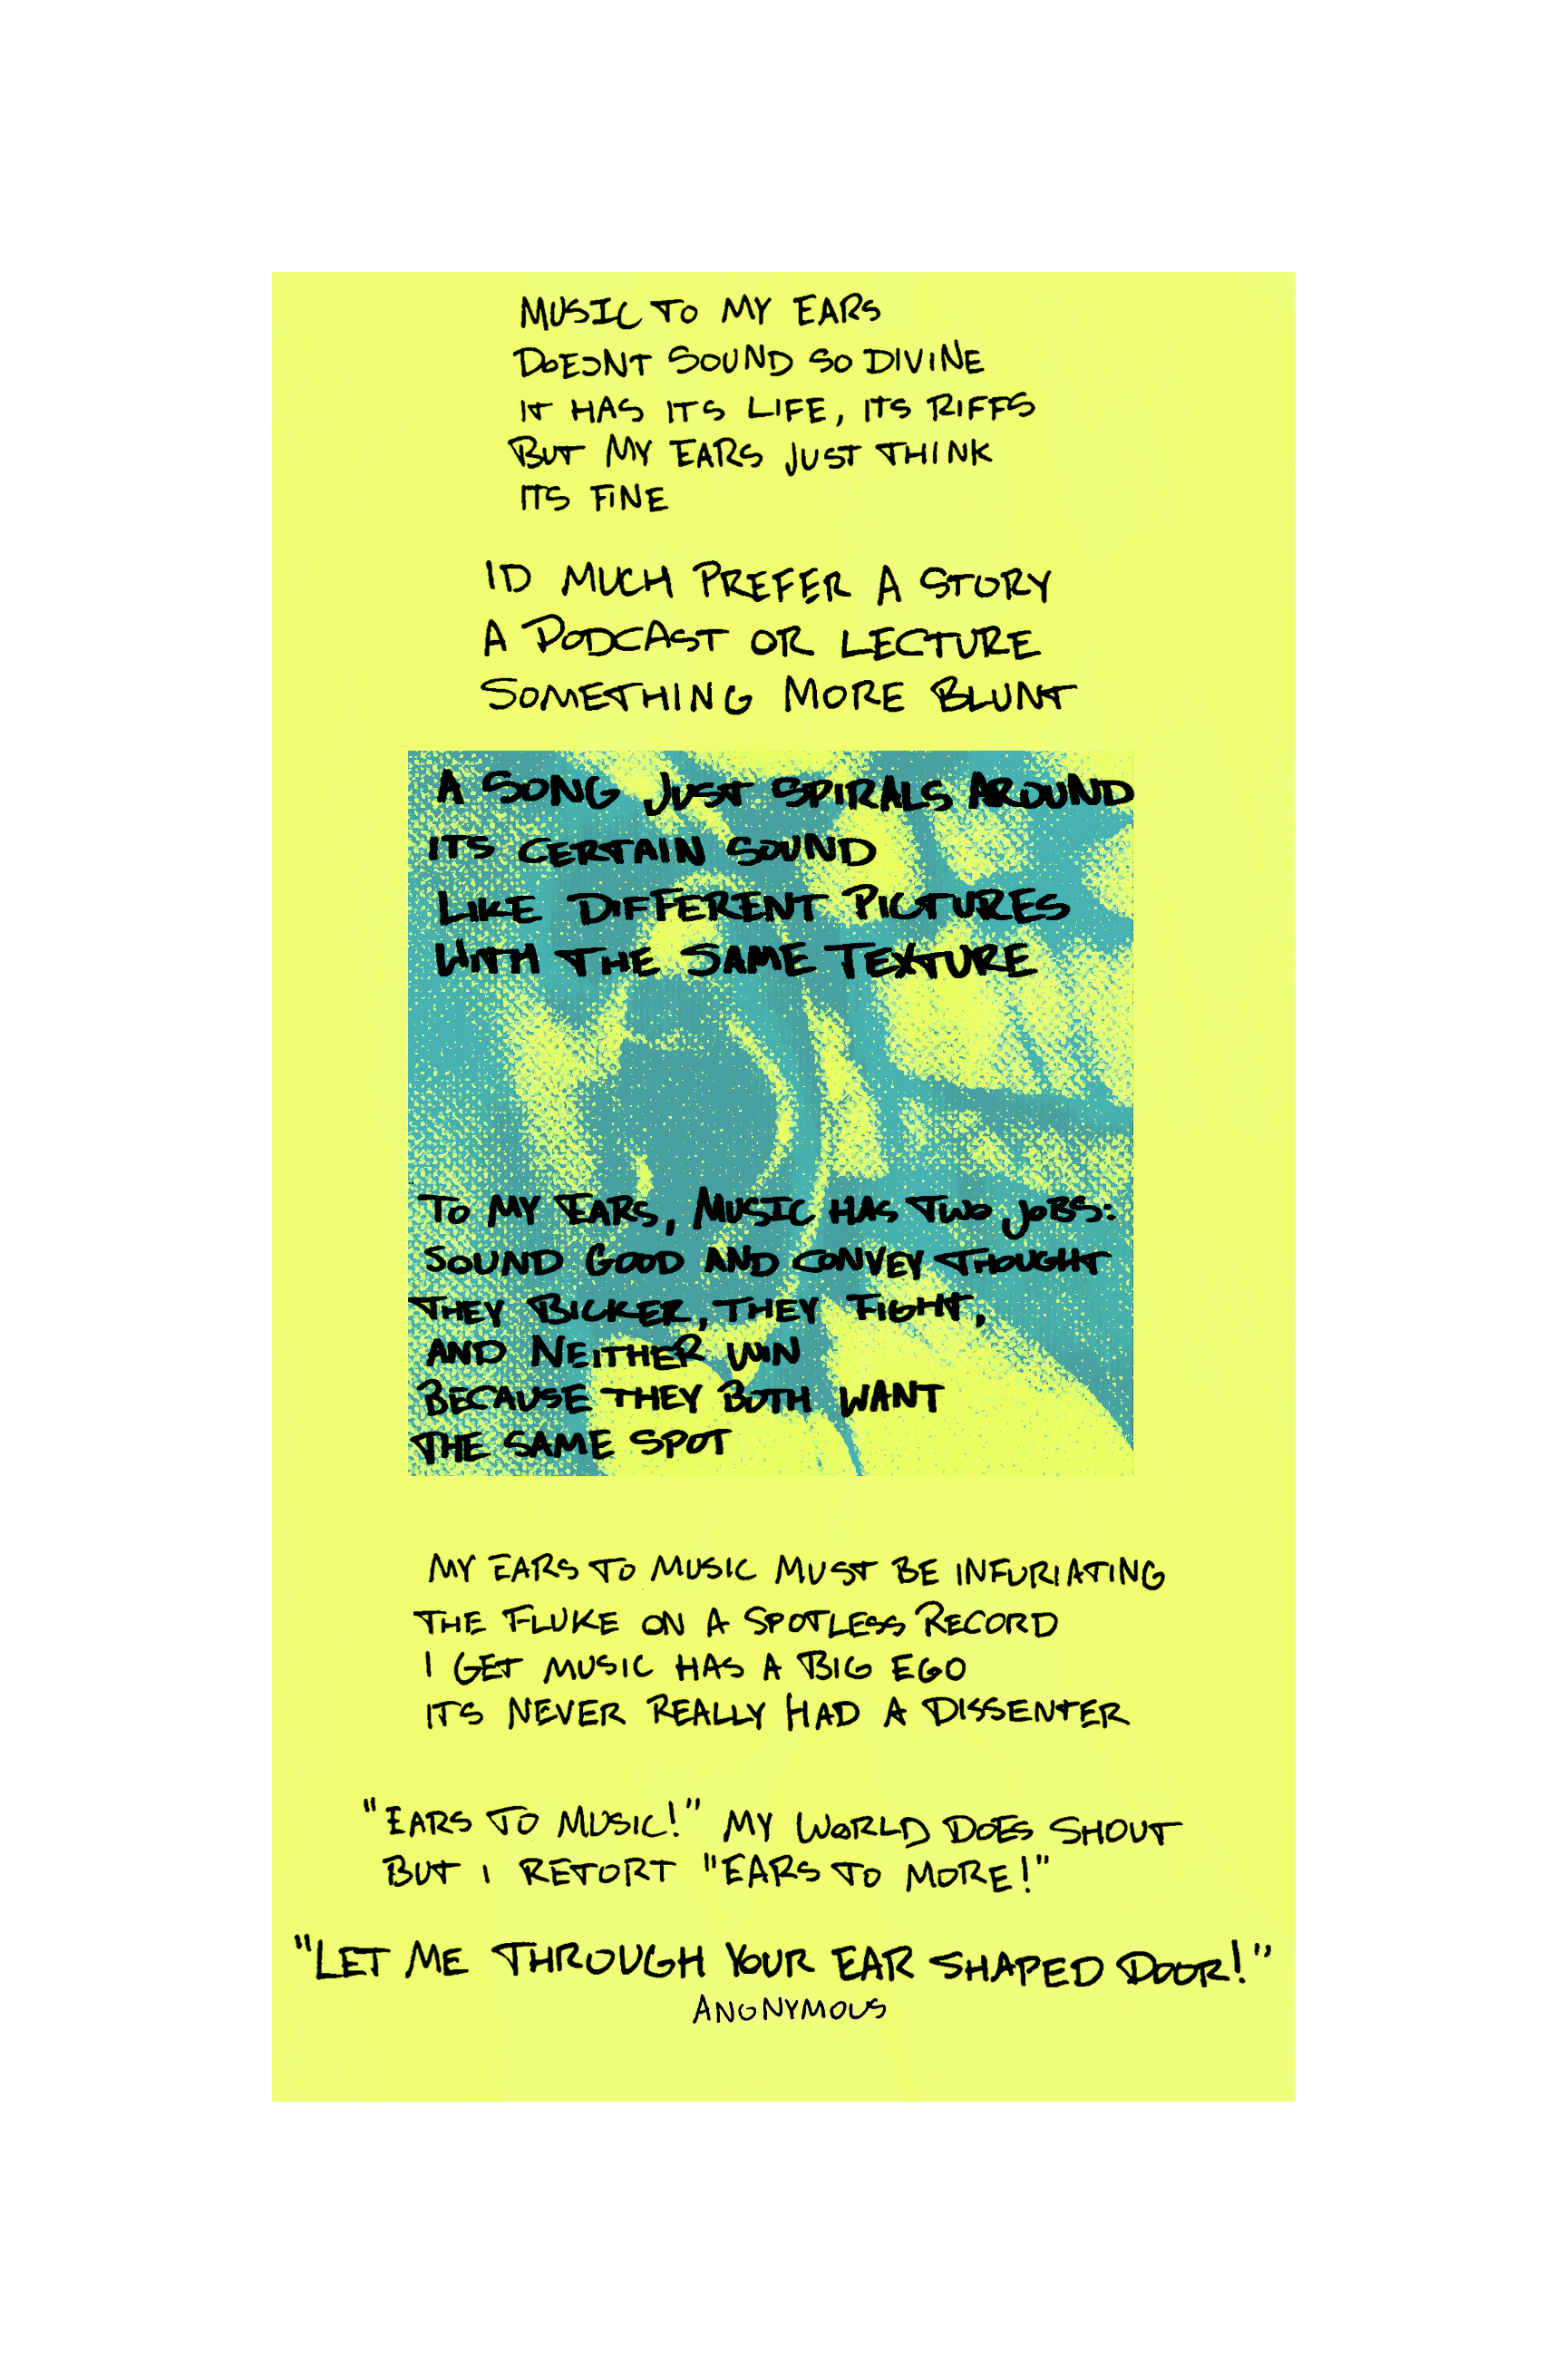 MUSIC TO MY EARS
DOESNT SOUND SO DIVINE
IT HAS ITS LIFE, ITS RIFFS
BUT MY EARS JUST THINK
ITS FINE
ID MUCH PREFER A STORY
A PODCAST OR LECTURE
SOMETHING MORE BLUNT
A SONG JUST SPIRALS AROUND
ITS CERTAIN SOUND
LIKE DIFFERENT PICTURES
WITH THE SAME TEXTURE
TO MY EARS, MUSIC HAS TWO JOBS:
SOUND GOOD AND CONVEY THOUGHT
THEY BICKER, THEY FIGHT,
AND NEITHER WIN
BECAUSE THEY BOTH WANT
THE SAME SPOT
MY EARS TO MUSIC MUST BE INFURIATING
THE FLUKE ON A SPOTLESS RECORD
I GET MUSIC HAS A BIG EGO
ITS NEVER REALLY HAD A DISSENTER
"EARS TO MUSIC!" MY WORLD DOES SHOUT
BUT I RETORT "EARS TO MORE!"
"LET ME THROUGH YOUR EAR SHAPED DOOR!"
ANONYMOUS